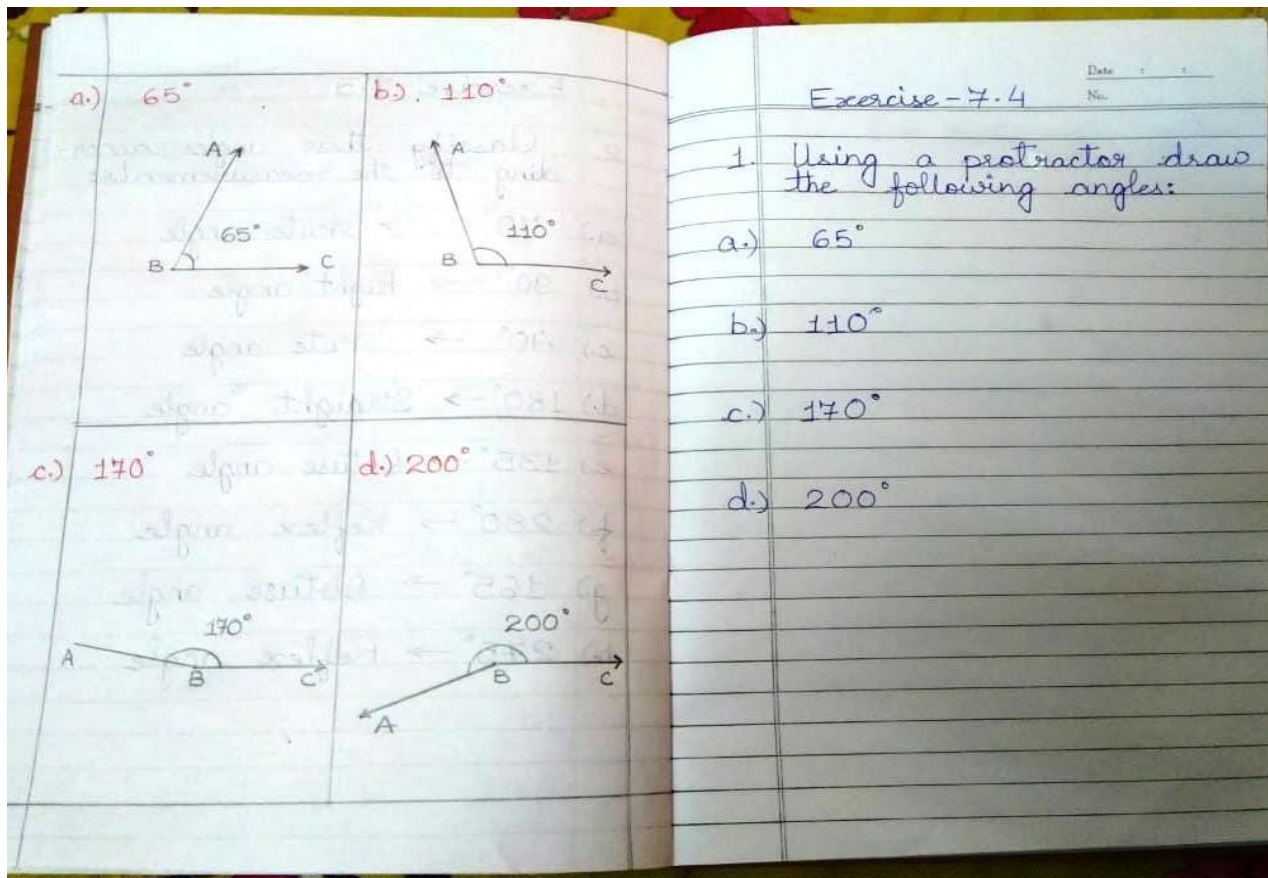 a.) 65°
A
65°
B C
b.) 110°
A
110°
B
C
c.) 170°
170°
A
B C
d.) 200°
200°
B C
A
Date : :
No.
Exercise - 7.4
1. Using a protractor draw
the following angles:
a.) 65°
b.) 110°
c.) 170°
d.) 200°